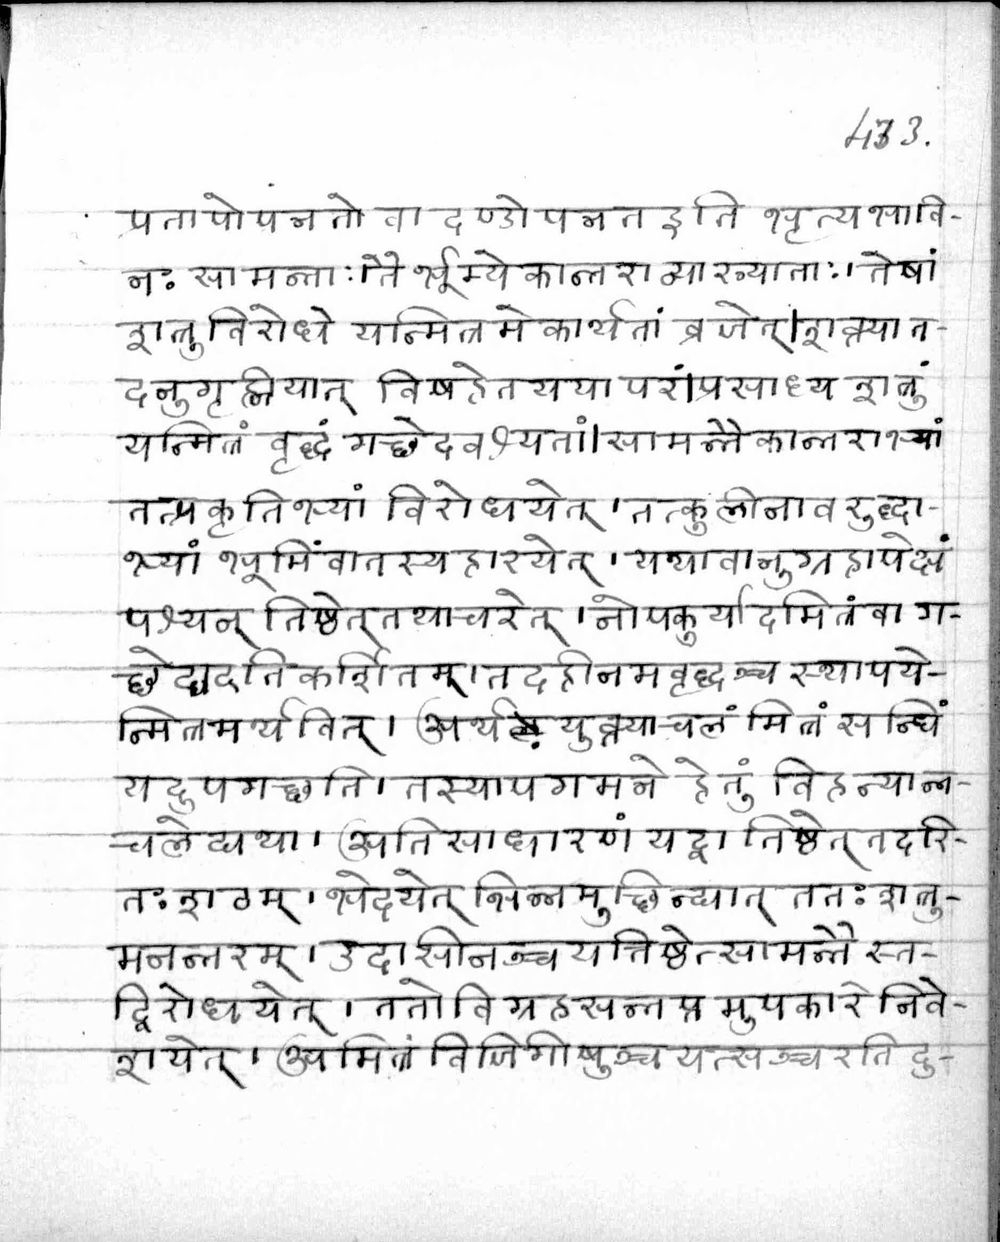 433.
प्रतापोपनतो वा दण्डोपनत इति भृत्यभावि-
नः सामन्ताः । तै र्भूम्येकान्तरा व्याख्याताः । तेषां
शत्रुविरोधे यन्मित्रमेकार्थतां व्रजेत् । शक्त्या त-
दनुगृह्णीयात् विषहेत यया परं । प्रसाध्य शत्रुं
यन्मित्रं वृद्धं गच्छेदवश्यतां । सामन्तैकान्तराभ्यां
तत्प्रकृतिभ्यां विरोधयेत् । तत्कुलीनावरुद्धा-
भ्यां भूमिं वा तस्य हारयेत् । यथा वानुग्रहापेक्षं
पश्यन् तिष्ठेत् तथाचरेत् । नोपकुर्यादमित्रं वा ग-
च्छेद्यदतिकर्शितम् । तदहीनमवृद्धञ्च स्थापये-
न्मित्रमर्थवित् । अर्थ युक्त्या चलं मित्रं सन्धिं
यदुपगच्छति । तस्यापगमने हेतुं विहन्यान्न-
चलेद्यथा । अतिसाधारणं यद्वा तिष्ठेत् तदरि-
तः शठम् । भेदयेत् भिन्नमुच्छिन्द्यात् ततः शत्रु-
मनन्तरम् । उदासीनञ्च यत्तिष्ठेत्सामन्तै स्त-
द्विरोधयेत् । ततो विग्रहसन्तप्तमुपकारे निवे-
शयेत् । अमित्रं विजिगीषुञ्च यत्सञ्चरति दु-